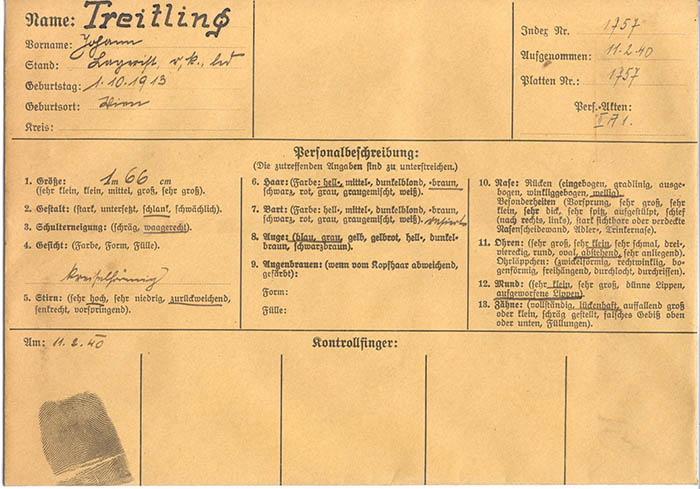 Name: Treitling
Vorname: Johann
Stand: Lagerist, r.k., led
Geburtstag: 1.10.1913
Geburtsort: Wien
Kreis:
Index Nr. 1757
Aufgenommen: 11.2.40
Platten Nr.: 1757
Pers.-Akten:
Personalbeschreibung:
(Die zutreffenden Angaben sind zu unterstreichen.)
1. Größe: 1 m 66 cm
(sehr klein, klein, mittel, groß, sehr groß).
2. Gestalt: (stark, untersetzt, schlank, schwächlich).
3. Schulterneigung: (schräg, waagerecht).
4. Gesicht: (Farbe, Form, Fülle).
5. Stirn: (sehr hoch, sehr niedrig, zurückweichend,
senkrecht, vorspringend).
6. Haar: (Farbe: hell-, mittel-, dunkelblond, -braun,
schwarz, rot, grau, graugemischt, weiß).
7. Bart: (Farbe: hell-, mittel-, dunkelblond, -braun,
schwarz, rot, grau, graugemischt, weiß)
8. Auge: (blau, grau, gelb, gelbrot, hell-, dunkel-
braun, schwarzbraun).
9. Augenbrauen: (wenn vom Kopfhaar abweichend,
gefärbt):
Form:
Fülle:
10. Nase: Rücken (eingebogen, gradlinig, ausge-
bogen, winkliggebogen, wellig).
Besonderheiten (Vorsprung, sehr groß, sehr
klein, sehr dick, sehr spitz, aufgestülpt, schief
(nach rechts, links), stark sichtbare oder verdeckte
Nasenscheidewand, Adler-, Trinkernase).
11. Ohren: (sehr groß, sehr klein, sehr schmal, drei-
viereckig, rund, oval, abstehend, sehr anliegend).
Ohrläppchen: (zwickelförmig, rechtwinklig, bo-
genförmig, freihängend, durchlocht, durchrissen).
12. Mund: (sehr klein, sehr groß, dünne Lippen,
aufgeworfene Lippen).
13. Zähne: (vollständig, lückenhaft, auffallend groß
oder klein, schräg gestellt, falsches Gebiß oben
oder unten, Füllungen).
Am: 11.2.40
Kontrollfinger: